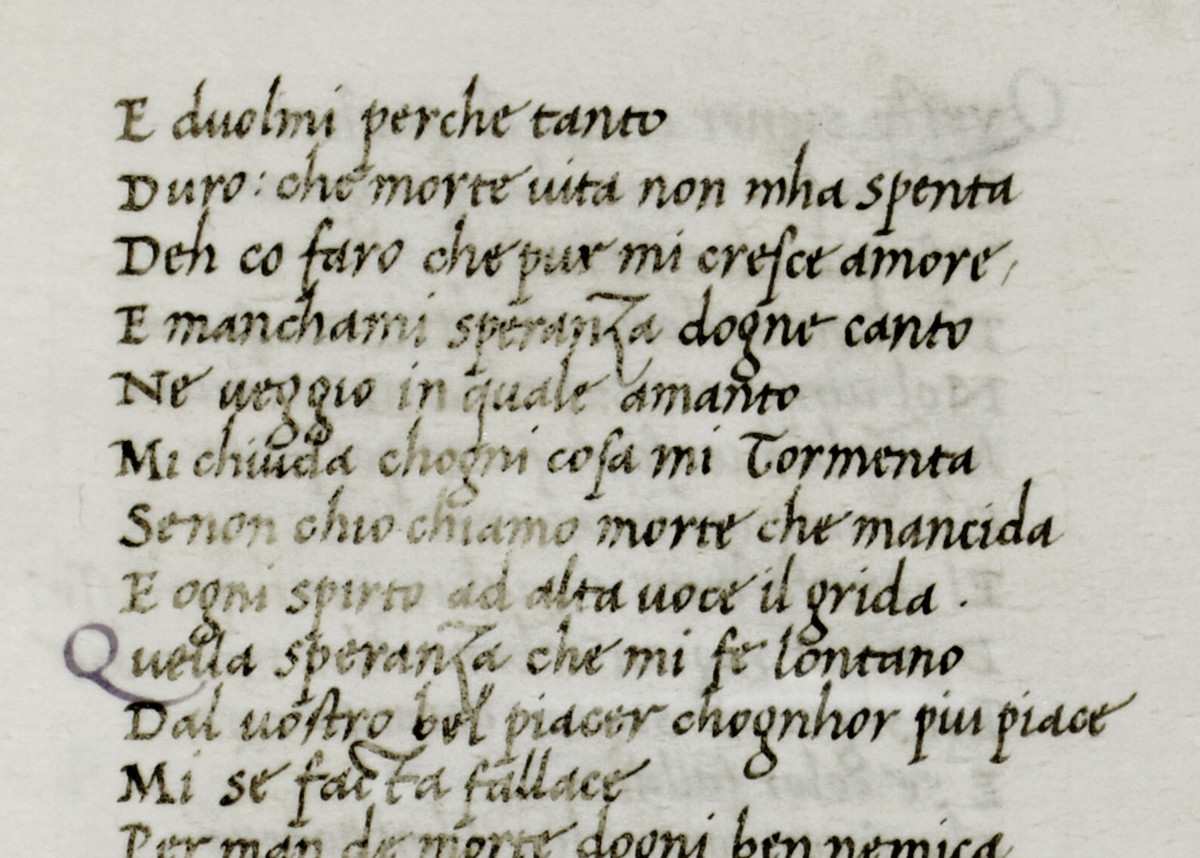 E duolmi perche tanto
Duro: che morte vita non mha spenta
Deh co faro che pur mi cresce amore,
E manchami speranza dogne canto
Ne veggio in quale amanto
Mi chiuda chogni cosa mi Tormenta
Senon chio chiamo morte che mancida
E ogni spirto ad alta voce il grida .
Quella speranza che mi fe lontano
Dal vostro bel piacer chognhor piu piace
Mi se facta fallace
Per man de morte dogni ben nemica